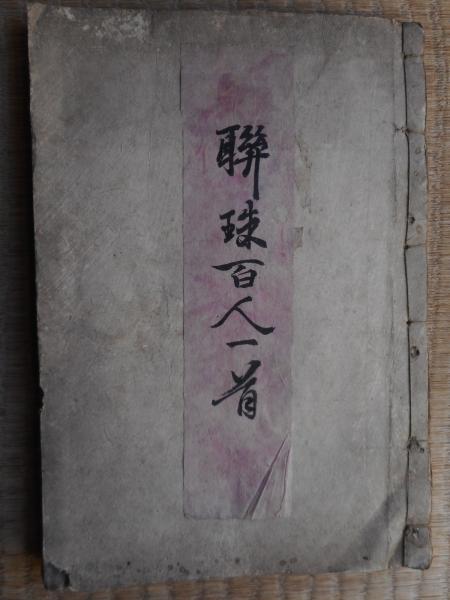 聯珠百人一首